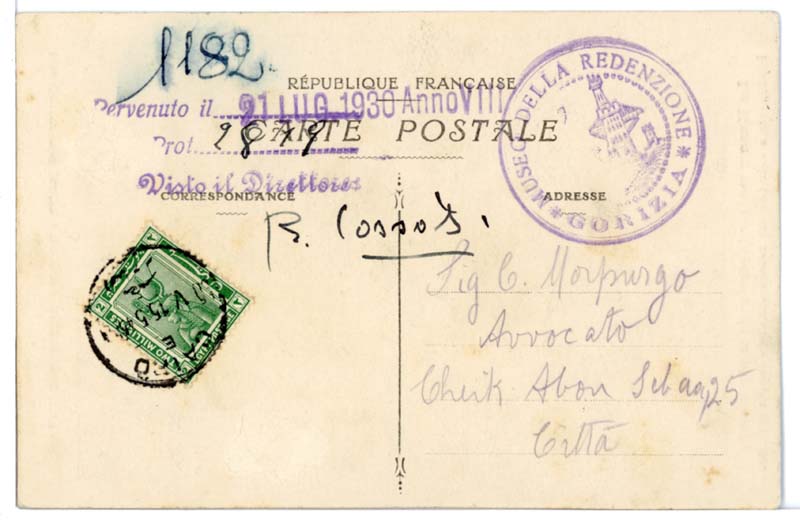 1182.
RÉPUBLIQUE FRANÇAISE
Pervenuto il 21 LUG. 1930 Anno VIII
CARTE POSTALE
Prot. 2849
Visto il Direttore
CORRESPONDANCE
ADRESSE
MUSEO DELLA REDENZIONE
* GORIZIA *
R. Cossàr
Sig C. Morpurgo
Avvocato
Cheik Abou Sebaa, 25
Città
2
CAIRO